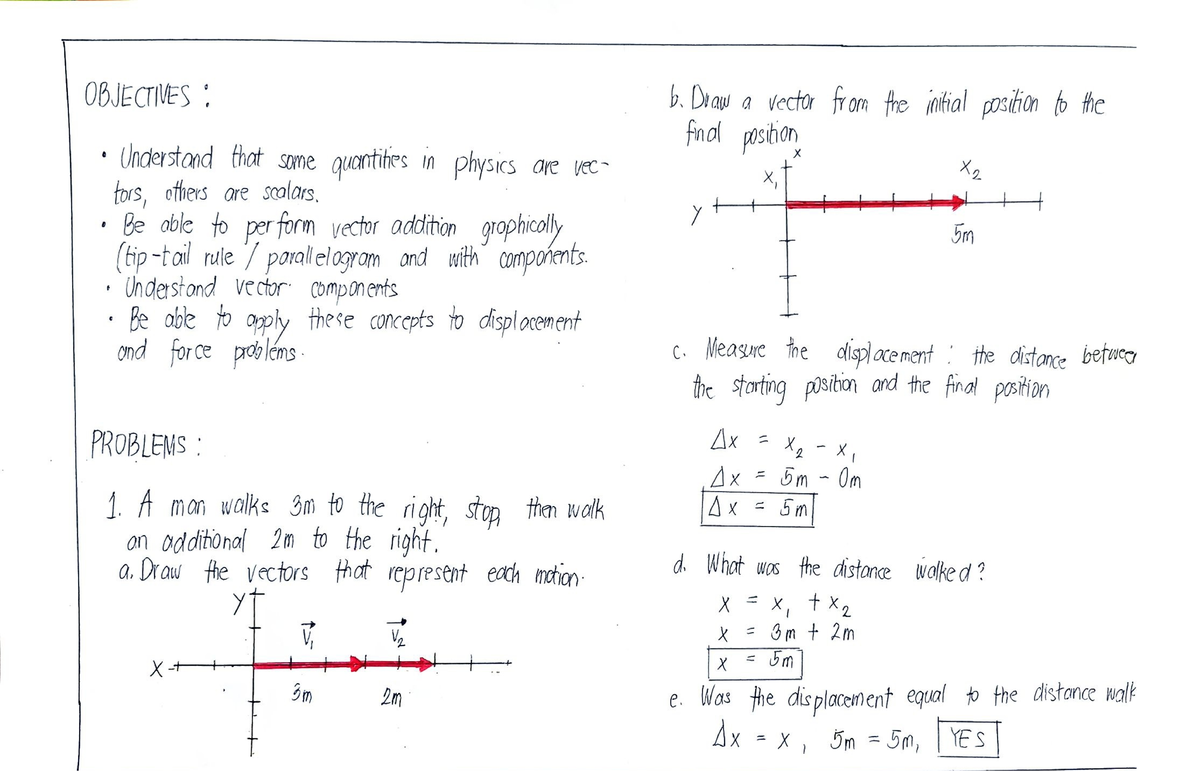 OBJECTIVES :
• Understand that some quantities in physics are vec-
tors, others are scalars.
• Be able to perform vector addition graphically
(tip-tail rule / parallelogram and with components.
• Understand vector components
• Be able to apply these concepts to displacement
and force problems.
PROBLEMS :
1. A man walks 3m to the right, stop, then walk
an additional 2m to the right.
a. Draw the vectors that represent each motion.
Y
V₁ V₂
X
3m 2m
b. Draw a vector from the initial position to the
final position
X
X₁ X₂
Y
5m
c. Measure the displacement : the distance between
the starting position and the final position
Δx = x₂ - x₁
Δx = 5m - 0m
Δx = 5m
d. What was the distance walked?
x = x₁ + x₂
x = 3m + 2m
x = 5m
e. Was the displacement equal to the distance walk
Δx = x, 5m = 5m, YES